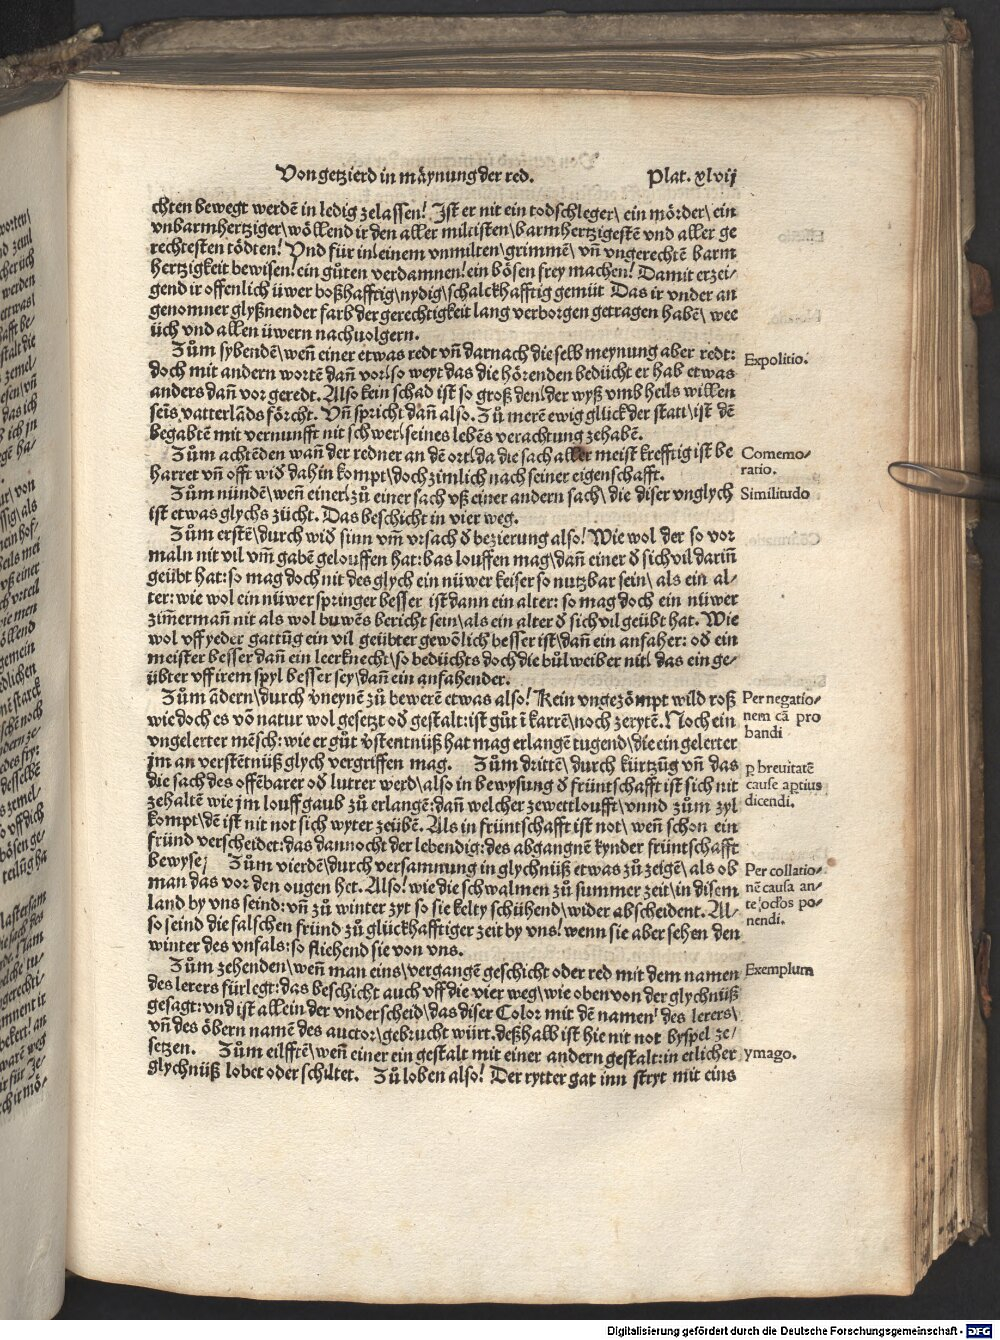 Von getzierd in mäynung der red. Plat. xlvij
chten bewegt werdē in ledig zelassen! Jst er nit ein todschleger\ ein mörder\ ein
vnbarmhertziger\ wöllend ir den aller miltisten\ barmhertzigestē vnd aller ge
rechtesten tödten! Vnd für in\ einem vnmilten\ grimmē\ vn̄ vngerechtē barm
hertzigkeit bewisen! ein gůten verdamnen! ein bösen frey machen! Damit erzei-
gend ir offenlich üwer boßhafftig\ nydig\ schalckhafftig gemüt Das ir vnder an
genomner glyßnender farb der gerechtigkeit lang verborgen getragen habē\ wee
üch vnd allen üwern nachuolgern.
Zům sybendē\ wen̄ einer etwas redt vn̄ darnach die selb meynung aber redt:
Expolitio.
doch mit andern wortē dan̄ vor\ so weyt das die hörenden bedücht er hab etwas
anders dan̄ vor geredt. Also kein schad ist so groß den\ der wyß vmb heils willen
seis vatterlāds förcht. Vn̄ spricht dan̄ also. Zů merē ewig glück der statt\ ist dē
begabtē mit vernunfft nit schwer\ seines lebēs verachtung zehabē.
Zům achtēden wan̄ der redner an dē ort\ da die sach aller meist krefftig ist be
Comemo-
ratio.
harret vn̄ offt wid dahin kompt\ doch zimlich nach seiner eigenschafft.
Zům nündē\ wen̄ einer\ zů einer sach vß einer andern sach\ die diser vnglych
Similitudo
ist etwas glychs zücht. Das beschicht in vier weg.
Zům erstē\ durch wid sinn vm̄ vrsach d bezierung also! Wie wol der so vor
maln nit vil vm̄ gabē gelouffen hat: bas louffen mag\ dan̄ einer d sich vil darin̄
geübt hat: so mag doch nit des glych ein nüwer keiser so nutzbar sein\ als ein al-
ter: wie wol ein nüwer springer besser ist dann ein alter: so mag doch ein nüwer
zim̄erman̄ nit als wol buwēs bericht sein\ als ein alter d sich vil geübt hat. Wie
wol vff yeder gattūg ein vil geübter gewōlich besser ist\ dan̄ ein anfaher: od ein
meister besser dan̄ ein leerknecht\ so bedüchts doch die bůlweiber nit\ das ein ge-
übter vff irem spyl besser sey\ dan̄ ein anfahender.
Zům ādern\ durch v̄neynē zů bewerē etwas also! Kein vngezömpt wild roß
Per negatio-
nem cā pro
bandi
wie doch es vō natur wol gesetzt od gestalt: ist gůt ī karrē\ noch zerytē. Noch ein
vngelerter mēsch: wie er gůt v̄stentnüß hat mag erlangē tugend\ die ein gelerter
jm an verstētnüß glych vergriffen mag. Zům drittē\ durch kürtzūg vn̄ das
ꝑ breuitatē
cause aptius
dicendi.
die sach des offēbarer od lutrer werd\ also in bewysung d früntschafft ist sich nit
zehaltē wie jm louff gaub zů erlangē: dan̄ welcher zewettloufft\ vnnd zům zyl
kompt\ dē ist nit not sich wyter zeübē. Als in früntschafft ist not\ wen̄ schon ein
fründ verscheidet: das dannocht der lebendig: des abgangnē kynder früntschafft
bewyse\ Zům vierdē\ durch versamnung in glychnüß etwas zů zeigē\ als ob
Per collatio-
nē causa an-
te oc̄los po-
nendi.
man das vor den ougen het. Also! wie die schwalmen zů summer zeit\ in disem
land by vns seind: vn̄ zů winter zyt so sie kelty schühend\ wider abscheident. Al-
so seind die falschen fründ zů glückhafftiger zeit by vns! wenn sie aber sehen den
winter des vnfals: so fliehend sie von vns.
Zům zehenden\ wen̄ man eins\ vergangē geschicht oder red mit dem namen
Exemplum
des lerers fürlegt: das beschicht auch vff die vier weg\ wie oben von der glychnüß
gesagt: vnd ist allein der vnderscheid\ das diser Color mit dē namen des lerers\
vn̄ des öbern namē des auctor\ gebrucht würt. deßhalb ist hie nit not byspel ze-
setzen. Zům eilfftē\ wen̄ einer ein gestalt mit einer andern gestalt: in etlicher
ymago.
glychnüß lobet oder schiltet. Zů loben also! Der rytter gat inn stryt mit eins
Digitalisierung gefördert durch die Deutsche Forschungsgemeinschaft - DFG